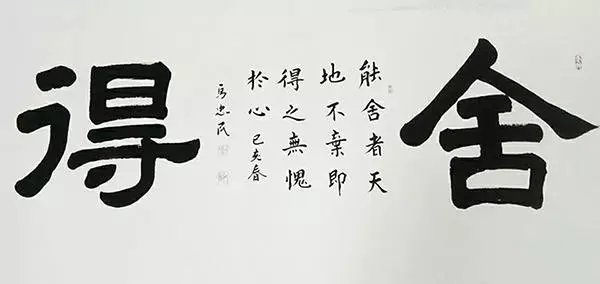 舍
能舍者天
地不棄即
得之無愧
於心 己亥春
马忠民
得